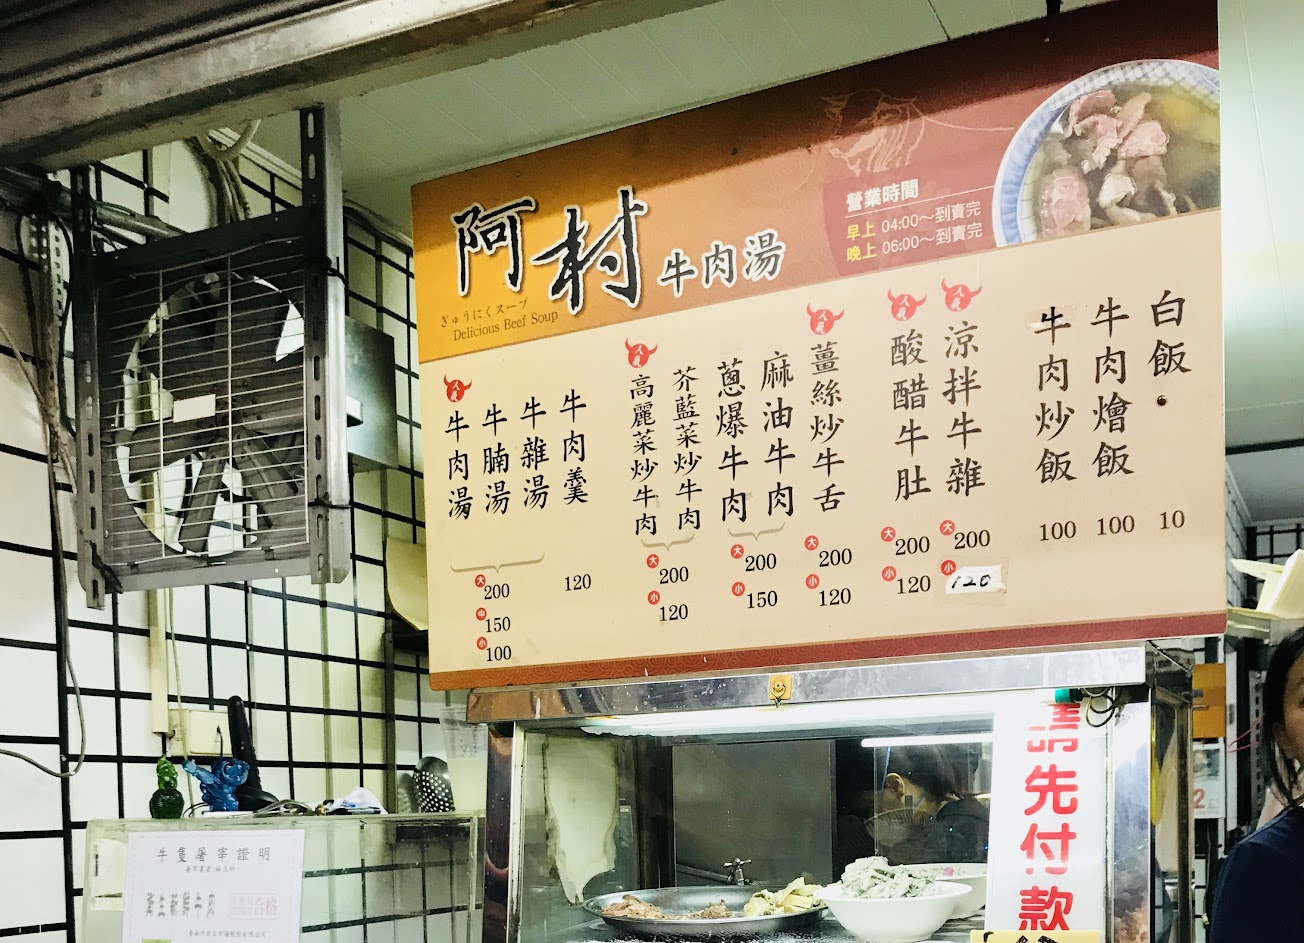 阿村 牛肉湯
ぎゅうにくスープ
Delicious Beef Soup
營業時間
早上 04:00～到賣完
晚上 06:00～到賣完
人氣
牛肉湯
牛腩湯
牛雜湯
大 200
中 150
小 100
牛肉羹
120
人氣
高麗菜炒牛肉
芥藍菜炒牛肉
大 200
小 120
蔥爆牛肉
麻油牛肉
大 200
小 150
人氣
薑絲炒牛舌
大 200
小 120
人氣
酸醋牛肚
大 200
小 120
人氣
涼拌牛雜
大 200
小 120
牛肉炒飯
100
牛肉燴飯
100
白飯
10
請先付款
牛隻屠宰證明
衛生新鮮牛肉
合格
2